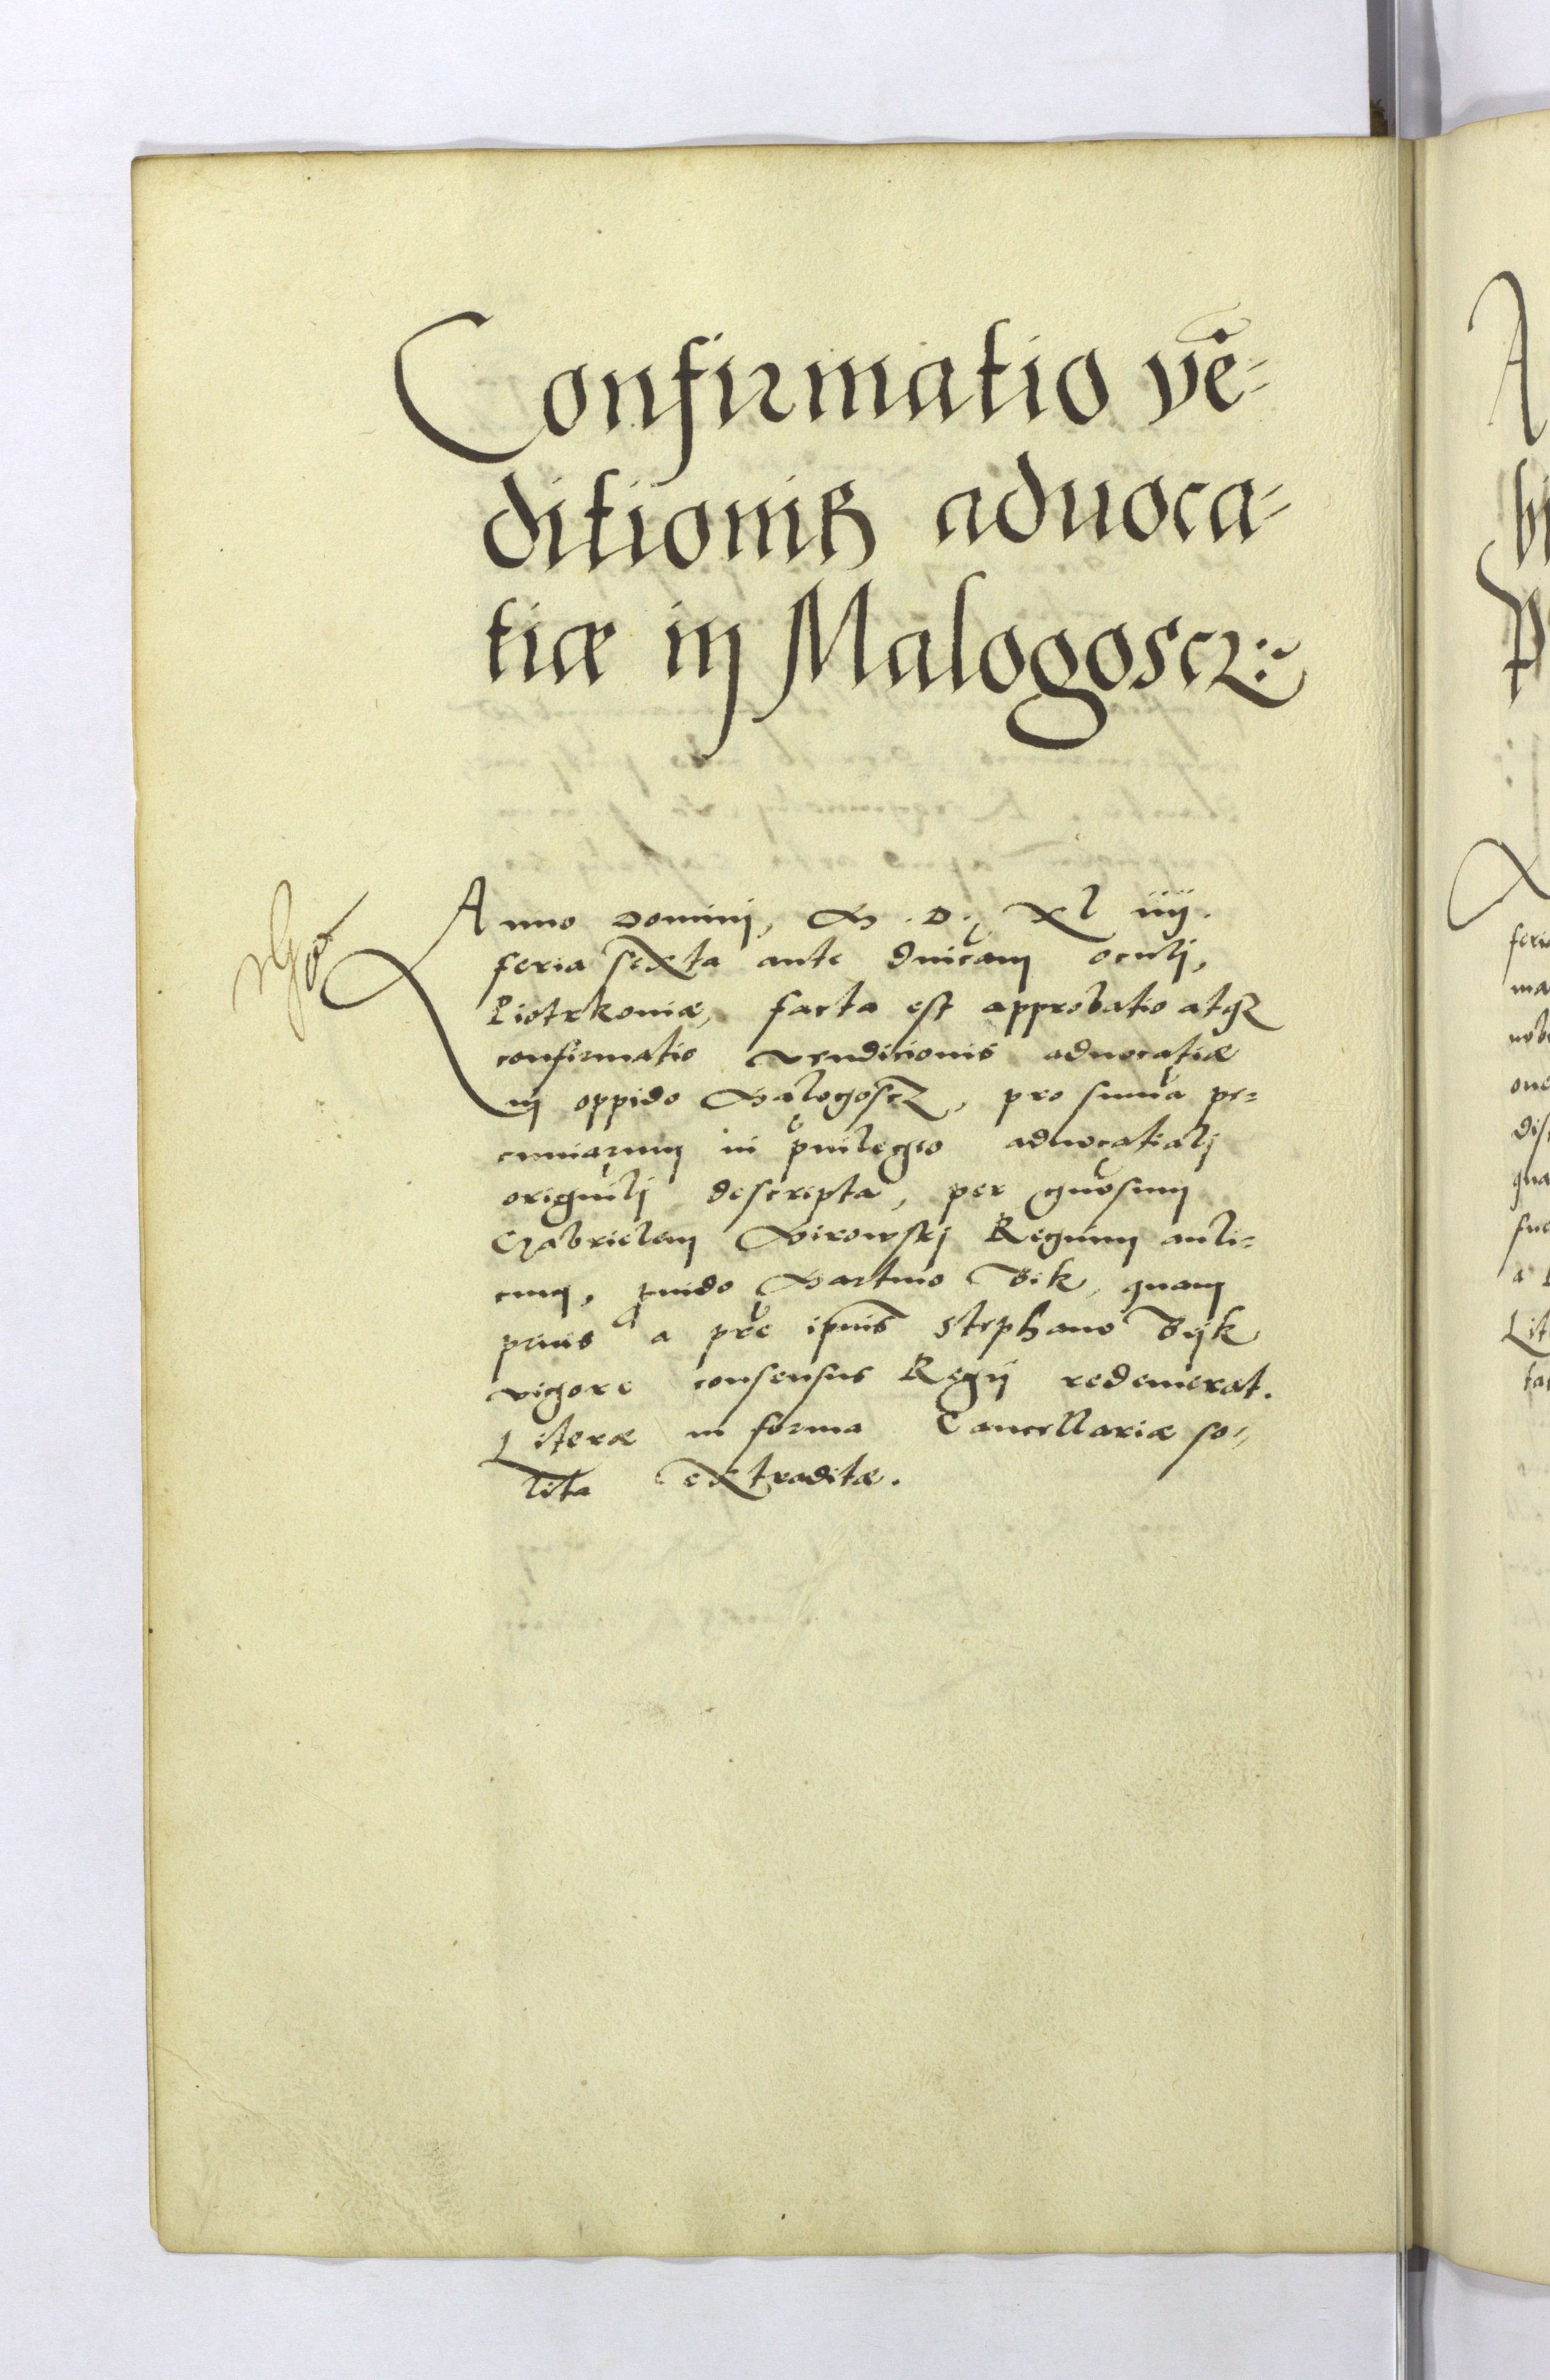 Confirmatio vē-
ditionis aduoca-
tiæ in Malogoscz
Anno Domini, M. D. Xl iiij.
feria sexta ante dnicam oculj,
Piotrkoniæ, facta est approbatio atqz
confirmatio vendicionis aduocatiæ
in oppido Malogoscz, pro summa pe-
cuniarum in priuilegio aduocatialj
originlj descripta, per gnosum
Gabrielem Mirowskj Regium auli-
cum, Martino Bik, quam
prius a pre ipius Stephano Bijk
vigore consensus Regij redemerat.
Literæ in forma Cancellariæ so-
lita extraditæ.